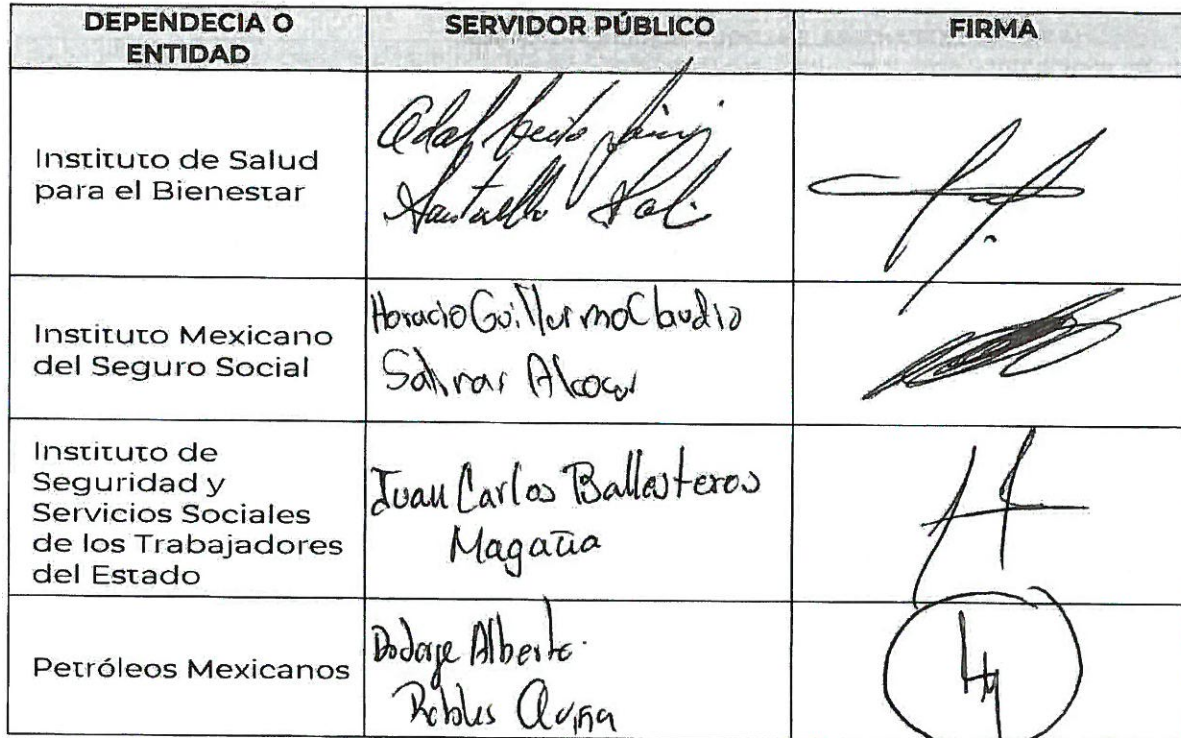 DEPENDECIA O
ENTIDAD
SERVIDOR PÚBLICO
FIRMA
Instituto de Salud
para el Bienestar
Adalberto Javier
Santaella Solís
Instituto Mexicano
del Seguro Social
Horacio Guillermo Claudio
Salinas Alcocer
Instituto de
Seguridad y
Servicios Sociales
de los Trabajadores
del Estado
Juan Carlos Ballesteros
Magaña
Petróleos Mexicanos
Alberto
Robles